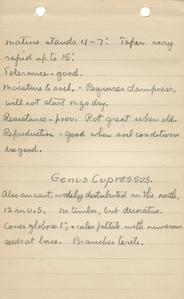 mature stands 4-7'. Taper very
rapid up to 15'.
Tolerance - good.
Moisture & soil. - Requires dampness,
will not start or go dry.
Resistance - poor. Rot great when old.
Reproduction - Good when soil conditions
are good.
Genus Cupressus.
Also ancient, widely distributed in the north,
12 in U.S. no timber, but decorative.
Cones globose 1", scales peltate with numerous
seeds at base. Branchlets terete.